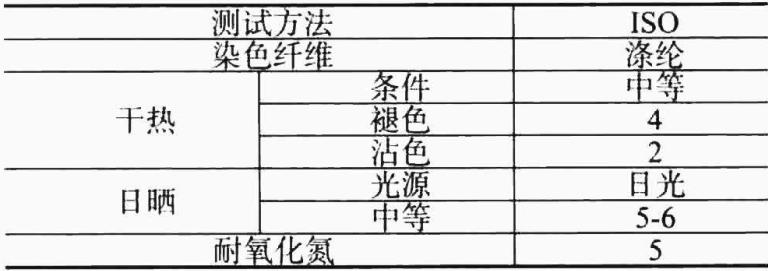 测试方法 ISO
染色纤维 涤纶
干热 条件 中等
褪色 4
沾色 2
日晒 光源 日光
中等 5-6
耐氧化氮 5